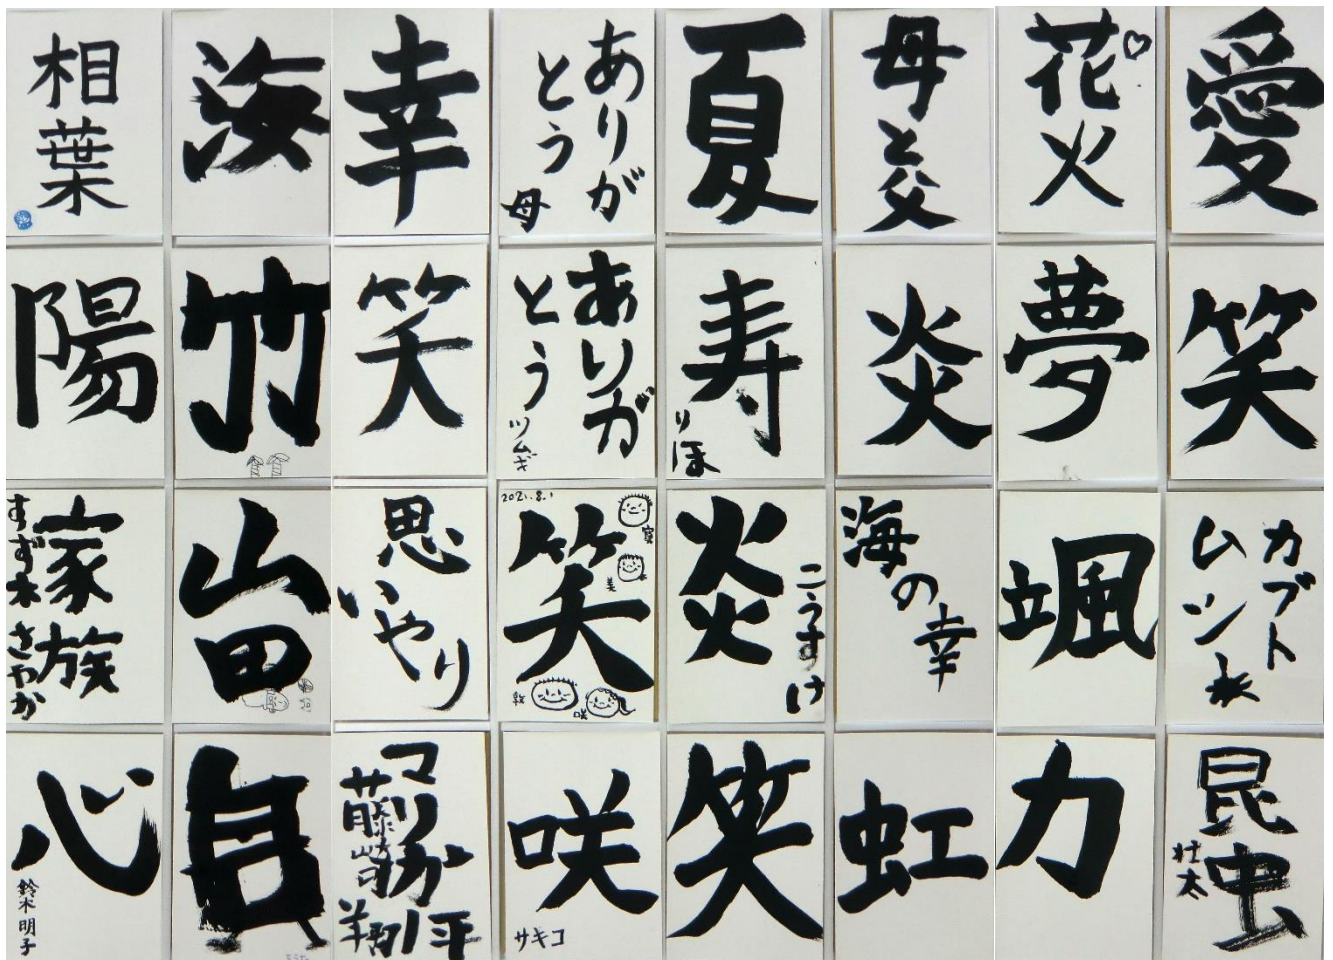 相葉
海
幸
ありが
とう
母
夏
母と父
花火
愛
陽
竹
笑
ありが
とう
ツムギ
寿
りほ
炎
夢
笑
家族
すず木さやか
山田
思
いやり
2021.8.1
笑
寛
美
敦
咲
炎
こうすけ
海の幸
颯
カブト
ムシ
心
鈴木明子
自
マリか
藤崎
翔平
咲
サキコ
笑
虹
力
昆虫
壮太